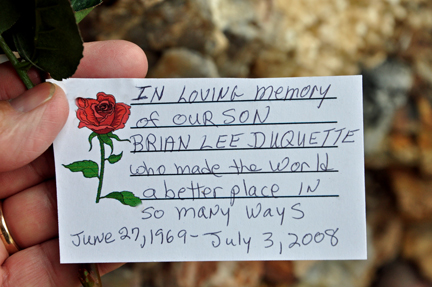 IN LOVING memory
of OUR SON
BRIAN LEE DUQUETTE
who made the World
a better place IN
so many ways
June 27, 1969 - July 3, 2008